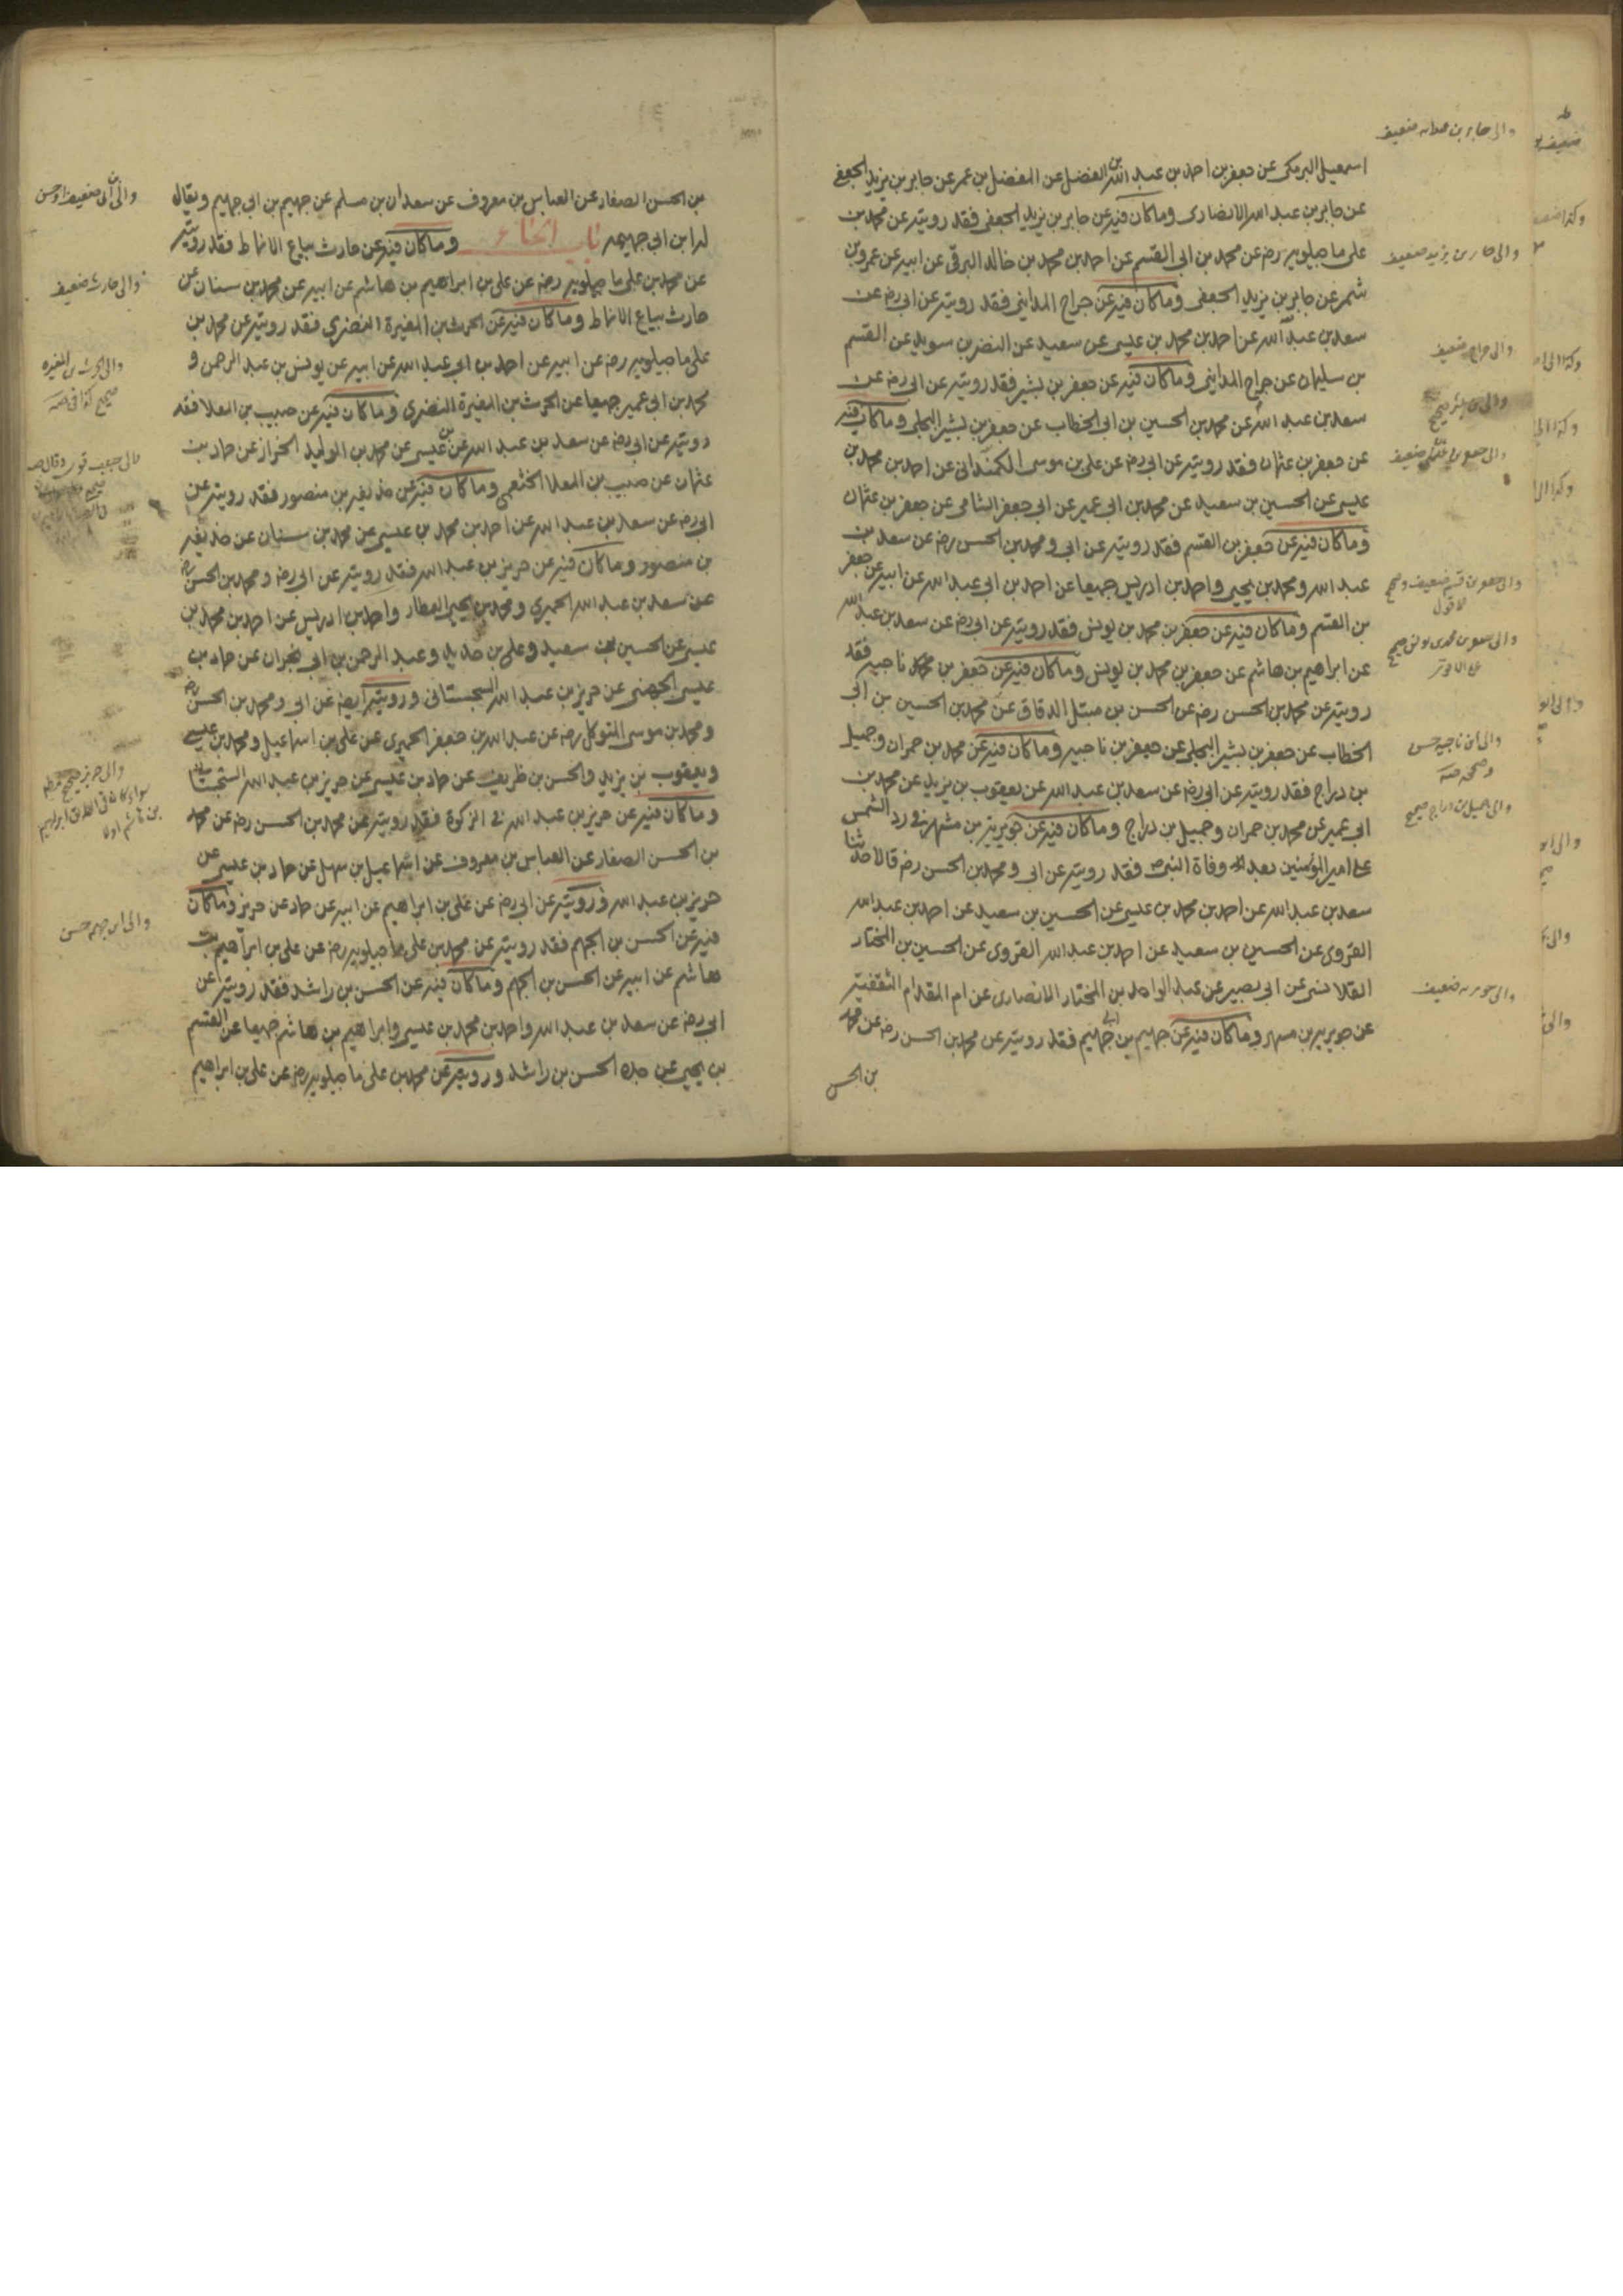 اسمعيل البرمكى عن جعفر بن احمد بن عبد الله بن الفضل عن المفضل بن عمر عن جابر بن يزيد الجعفى
عن جابر بن عبد الله الانصارى وماكان فيه عن جابر بن يزيد الجعفى فقد رويته عن محمد بن
على ماجيلويه رضه عن محمد بن ابى القسم عن احمد بن محمد بن خالد البرقى عن ابيه عن عمرو بن
شمر عن جابر بن يزيد الجعفى وماكان فيه عن جراح المداينى فقد رويته عن ابى رضه عن
سعد بن عبد الله عن احمد بن محمد بن عيسى عن سعيد عن النضر بن سويد عن القسم
بن سليمان عن جراح المداينى وماكان فيه عن جعفر بن بشير فقد رويته عن ابى رضه عن
سعد بن عبد الله عن محمد بن الحسين بن ابى الخطاب عن جعفر بن بشير البجلى وماكان فيه
عن جعفر بن عثمان فقد رويته عن ابى رضه عن على بن موسى الكمندانى عن احمد بن محمد بن
عيسى عن الحسين بن سعيد عن محمد بن ابى عمير عن ابى جعفر الشامى عن جعفر بن عثمان
وماكان فيه عن جعفر بن القسم فقد رويته عن ابى ومحمد بن الحسن رضه عن سعد بن
عبد الله ومحمد بن يحيى واحمد بن ادريس جميعا عن احمد بن ابى عبد الله عن ابيه عن جعفر
بن القسم وماكان فيه عن جعفر بن محمد بن يونس فقد رويته عن ابى رضه عن سعد بن عبد الله
عن ابراهيم بن هاشم عن جعفر بن محمد بن يونس وماكان فيه عن جعفر بن ناجيه فقد
رويته عن محمد بن الحسن رضه عن الحسن بن متيل الدقاق عن محمد بن الحسين بن ابى
الخطاب عن جعفر بن بشير البجلى عن جعفر بن ناجيه وماكان فيه عن محمد بن حمران وجميل
بن دراج فقد رويته عن ابى رضه عن سعد بن عبد الله عن يعقوب بن يزيد عن محمد بن
ابى عمير عن محمد بن حمران وجميل بن دراج وماكان فيه عن جويرية بن مسهر فى رد الشمس
على امير المؤمنين بعد وفاة النبى فقد رويته عن ابى ومحمد بن الحسن رضه قالا حدثنا
سعد بن عبد الله عن احمد بن محمد بن عيسى عن الحسين بن سعيد عن احمد بن عبد الله
القروى عن الحسين بن سعيد عن احمد بن عبد الله القروى عن الحسين بن المختار
القلانسى عن ابى بصير عن عبد الواحد بن المختار الانصارى عن ام المقدام الثقفية
عن جويرية بن مسهر وماكان فيه عن جهيم بن ابى جهيم فقد رويته عن محمد بن الحسن رضه عن محمد
بن الحسن
والى جابر بن عبد الله ضعيف
والى جابر بن يزيد ضعيف
والى جراح ضعيف
والى جعفر بن عثمان ضعيف
والى ابن ناجيه حسن
والى جميل بن دراج صحيح
والى جويريه ضعيف
بن الحسن الصفار عن العباس بن معروف عن سعدان بن مسلم عن جهيم بن ابى جهيم ويقال
له ابن ابى جهيمه باب الحاء وماكان فيه عن حارث بياع الانماط فقد رويته
عن محمد بن على ماجيلويه رضه عن على بن ابراهيم بن هاشم عن ابيه عن محمد بن سنان عن
حارث بياع الانماط وماكان فيه عن الحرث بن المغيرة النضرى فقد رويته عن محمد بن
على ماجيلويه رضه عن ابيه عن احمد بن ابى عبد الله عن ابيه عن يونس بن عبد الرحمن و
محمد بن ابى عمير جميعا عن الحرث بن المغيرة النضرى وماكان فيه عن حبيب بن المعلا فقد
رويته عن ابى رضه عن سعد بن عبد الله عن بن عيسى عن محمد بن الوليد الخزاز عن حماد بن
عثمان عن حبيب بن المعلا الخثعمى وماكان فيه عن حذيفه بن منصور فقد رويته عن
ابى رضه عن سعد بن عبد الله عن احمد بن محمد بن عيسى عن محمد بن سنان عن حذيفه
بن منصور وماكان فيه عن حريز بن عبد الله فقد رويته عن ابى رضه ومحمد بن الحسن رضه
عن سعد بن عبد الله الحميرى ومحمد بن يحيى العطار واحمد بن ادريس عن احمد بن محمد بن
عيسى عن الحسين بن سعيد وعلى بن حديد وعبد الرحمن بن ابى نجران عن حماد بن
عيسى الجهنى عن حريز بن عبد الله السجستانى ورويته ايضا عن ابى ومحمد بن الحسن رضه
ومحمد بن موسى المتوكل رضه عن عبد الله بن جعفر الحميرى عن على بن اسماعيل ومحمد بن عيسى
ويعقوب بن يزيد والحسن بن ظريف عن حماد بن عيسى عن حريز بن عبد الله السجستانى
وماكان فيه عن حريز بن عبد الله فى الزكوة فقد رويته عن محمد بن الحسن رضه عن محمد
بن الحسن الصفار عن العباس بن معروف عن اسماعيل بن سهل عن حماد بن عيسى عن
حريز بن عبد الله ورويته عن ابى رضه عن على بن ابراهيم عن ابيه عن حماد عن حريز وماكان
فيه عن الحسن بن الجهم فقد رويته عن محمد بن على ماجيلويه رضه عن على بن ابراهيم بن
هاشم عن ابيه عن الحسن بن الجهم وماكان فيه عن الحسن بن راشد فقد رويته عن
ابى رضه عن سعد بن عبد الله واحمد بن محمد بن عيسى وابراهيم بن هاشم جميعا عن القسم
بن يحيى عن جده الحسن بن راشد ورويته عن محمد بن على ماجيلويه رضه عن على بن ابراهيم
والى حارث ضعيف
والى الحرث بن المغيره
والى ابن جهم حسن